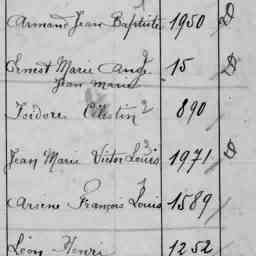 Armand Jean Baptiste 1950 D
Ernest Marie Ange 15 D
Jean Marie
Isidore Célestin 2 890 /
Jean Marie Victor Louis 3 1971 D
Arsène François Louis 1589 /
Léon Henri 1252